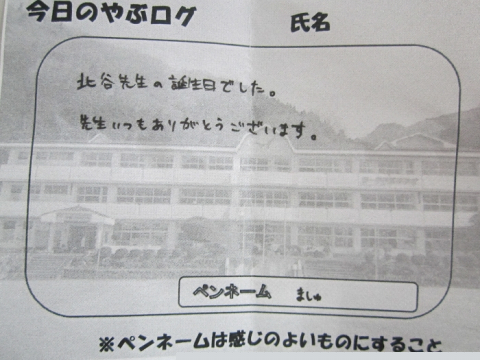 今日のやぶログ 氏名
北谷先生の誕生日でした。
先生いつもありがとうございます。
ペンネーム ましゅ
※ペンネームは感じのよいものにすること